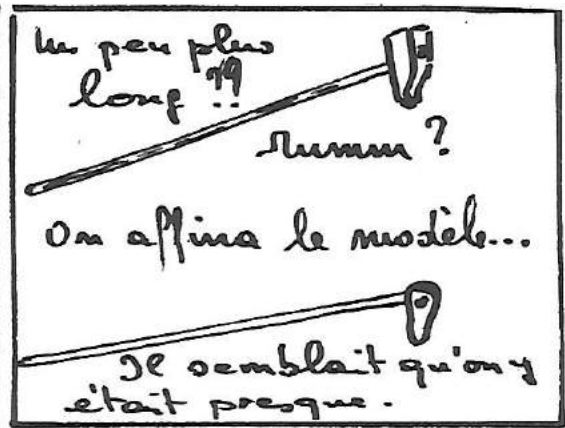 Un peu plus
long ??
Mumm ?
On affina le modèle...
Il semblait qu'on y
était presque.